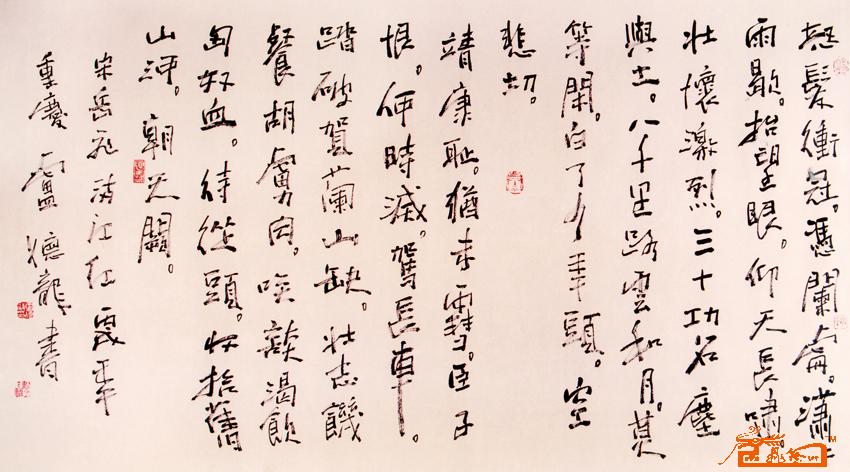 怒髮衝冠。憑闌處。瀟瀟
雨歇。抬望眼。仰天長嘯。
壯懷激烈。三十功名塵
與土。八千里路雲和月。莫
等閑。白了少年頭。空
悲切。
靖康恥。猶未雪。臣子
恨。何時滅。駕長車。
踏破賀蘭山缺。壯志饑
餐胡虜肉。笑談渴飲
匈奴血。待從頭。收拾舊
山河。朝天闕。
宋岳飛滿江紅
重慶盧德龍書